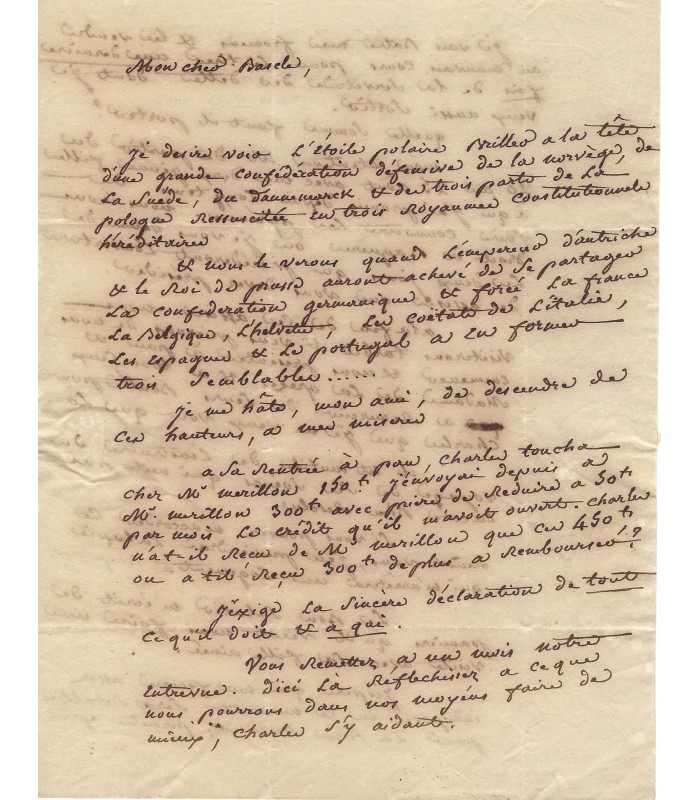 Mon cher Bascle,
Je desire voir L'étoile polaire Briller a la tête
d'une grande confédération défensive de la norvège, de
La Suède, du dannemarck & des trois parts de La
pologne Ressuscitée en trois Royaumes constitutionnels
héréditaires
& nous le verons quand L'empereur d'autriche
& le Roi de prusse auront achevé de se partager
La confédération germanique & forcé La france
La Belgique, L'helvetie, Les coétats de L'italie,
Les Espagnes & Le portugal a en former
trois Semblables......
Je me hâte, mon ami, de descendre de
ces hauteurs, a mes miseres
a sa Rentrée à pau, Charles toucha
chez Mr merillon 150tt j'envoyai depuis a
Mr. merillon 300tt avec prière de Reduire a 50tt
par mois Le crédit qu'il m'avoit ouvert. Charles
n'at il Reçu de Mr merillon que ces 450tt
ou a til Reçu 300tt de plus a Rembourser!?
J'exige La Sincère déclaration de tout
Ce qu'il doit & a qui.
Vous Remettez a un mois notre
Entrevue. d'ici Là Réflechissez a ce que
nous pourrons dans nos moyens faire de
mieux, Charles s'y aidant.